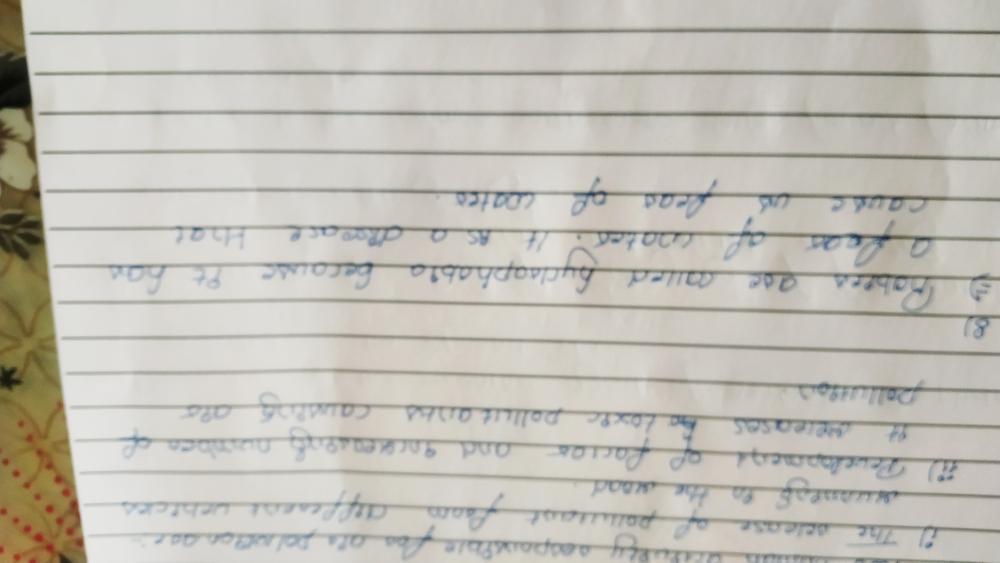 directly responsible for air pollution are:-
i) The release of pollutant from different vehicles
running to the road.
ii) Development of factor and increasing number of
it releases toxic pollutants causing air
pollution.
8)
⇒ Rabies are called hydrophobia because it has
a fear of water. It is a disease that
cause us fear of water.